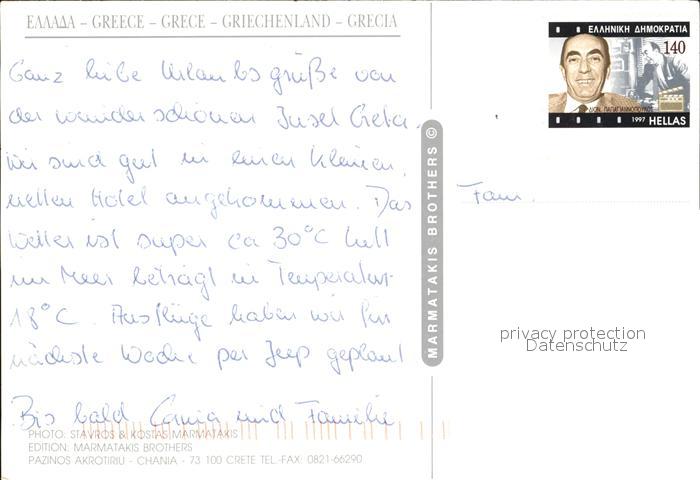 ΕΛΛΑΔΑ – GREECE – GRECE – GRIECHENLAND – GRECIA
Ganz liebe Urlaubsgrüße von
der wunderschönen Insel Creta.
Wir sind gut in einen kleinen,
netten Hotel angekommen. Das
Wetter ist super ca 30°C Luft
im Meer beträgt die Temperatur
18°C. Ausflüge haben wir für
nächste Woche per Jeep geplant
Bis bald und Familie
PHOTO: STAVROS & KOSTAS MARMATAKIS
EDITION: MARMATAKIS BROTHERS
PAZINOS AKROTIRIU - CHANIA - 73 100 CRETE TEL.-FAX: 0821-66290
MARMATAKIS BROTHERS ©
ΕΛΛΗΝΙΚΗ ΔΗΜΟΚΡΑΤΙΑ
140
ΔΙΟΝ. ΠΑΠΑΓΙΑΝΝΟΠΟΥΛΟΣ
1997 HELLAS
Fam.
privacy protection
Datenschutz